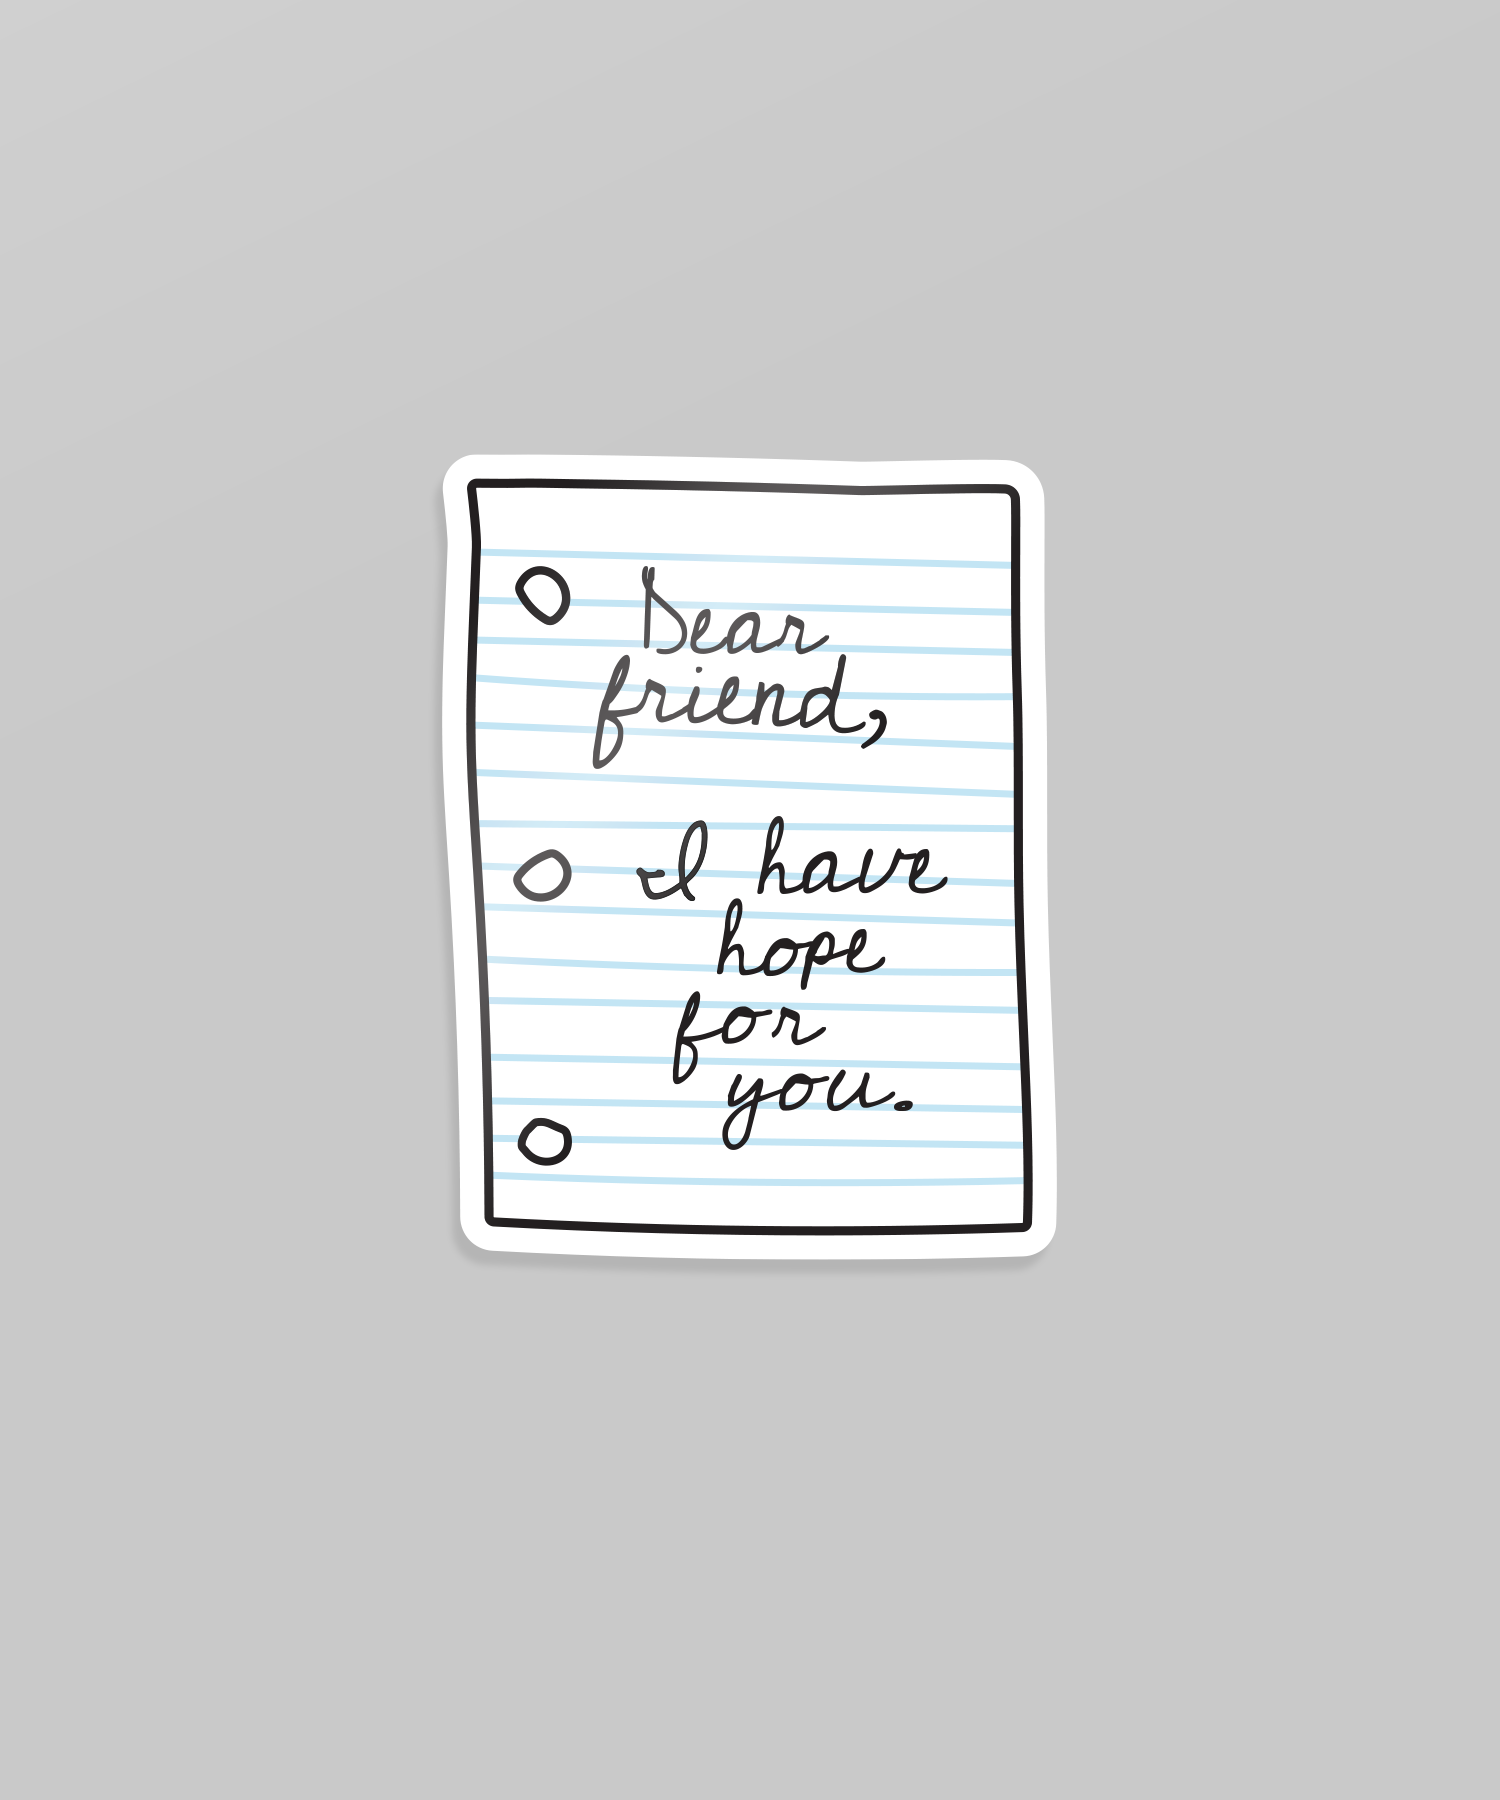 Dear
friend,
I have
hope
for
you.